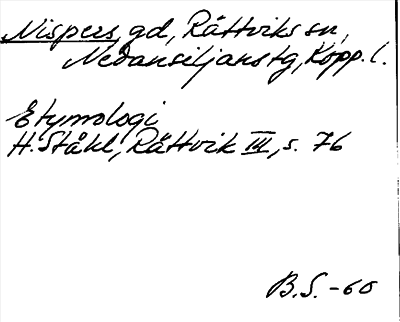 Nispers, gd, Rättviks sn,
Nedansiljanstg, Kopp. l.
Etymologi
H. Ståhl, Rättvik III, s. 76
B.S. -60